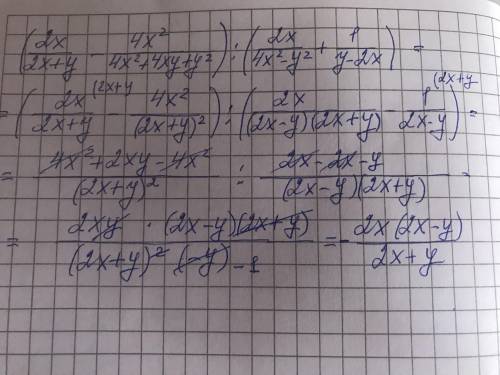 (2x/(2x+y) - 4x²/(4x²+4xy+y²)) : (2x/(4x²-y²) + 1/(y-2x)) =
= (2x (2x+y/(2x+y) - 4x²/(2x+y)²) : (2x/((2x-y)(2x+y)) - 1 (2x+y/(2x-y)) =
= (4x²+2xy-4x²)/(2x+y)² : (2x-2x-y)/((2x-y)(2x+y)) =
= (2xy · (2x-y)(2x+y))/((2x+y)² (-y) -1) = - 2x(2x-y)/(2x+y)